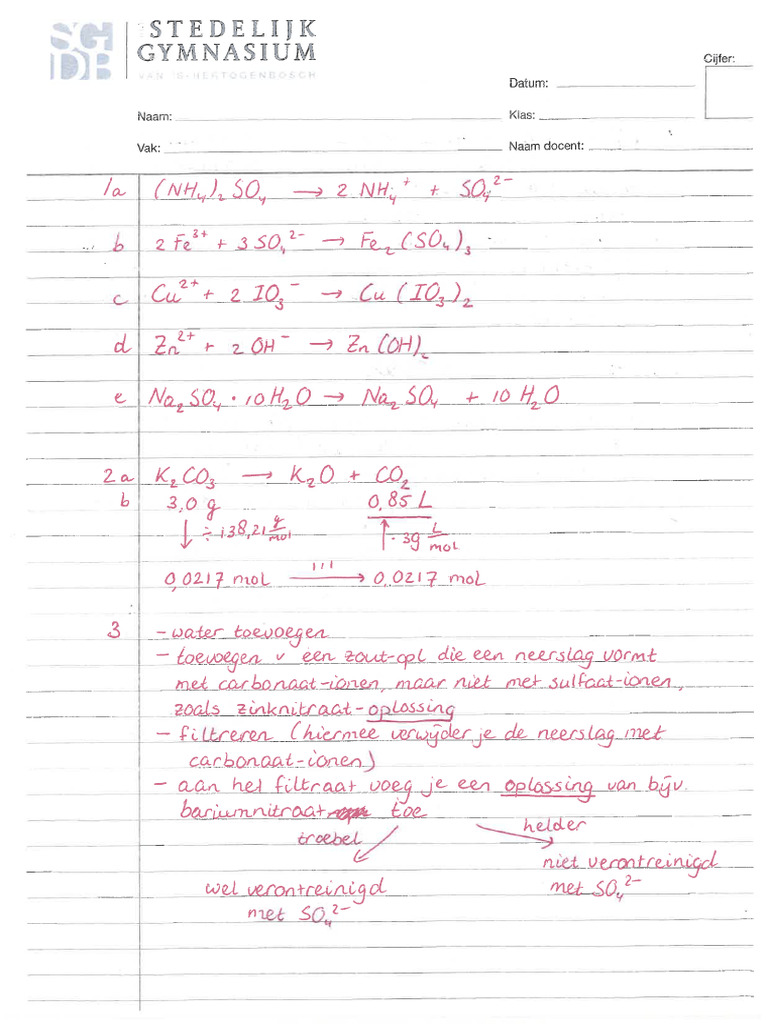 SG STEDELIJK
DB GYMNASIUM
VAN 'S-HERTOGENBOSCH
Cijfer:
Datum:
Naam: Klas:
Vak: Naam docent:
1a (NH₄)₂SO₄ → 2 NH₄⁺ + SO₄²⁻
b 2 Fe³⁺ + 3 SO₄²⁻ → Fe₂(SO₄)₃
c Cu²⁺ + 2 IO₃⁻ → Cu(IO₃)₂
d Zn²⁺ + 2 OH⁻ → Zn(OH)₂
e Na₂SO₄ · 10 H₂O → Na₂SO₄ + 10 H₂O
2a K₂CO₃ → K₂O + CO₂
b 3,0 g 0,85 L
↓ ÷ 138,21 g/mol ↑ · 39 L/mol
0,0217 mol → 0,0217 mol
3 - water toevoegen
- toevoegen v een zout-opl die een neerslag vormt
met carbonaat-ionen, maar niet met sulfaat-ionen,
zoals zinknitraat-oplossing
- filtreren (hiermee verwijder je de neerslag met
carbonaat-ionen)
- aan het filtraat voeg je een oplossing van bijv.
bariumnitraat toe
troebel helder
niet verontreinigd
met SO₄²⁻
wel verontreinigd
met SO₄²⁻